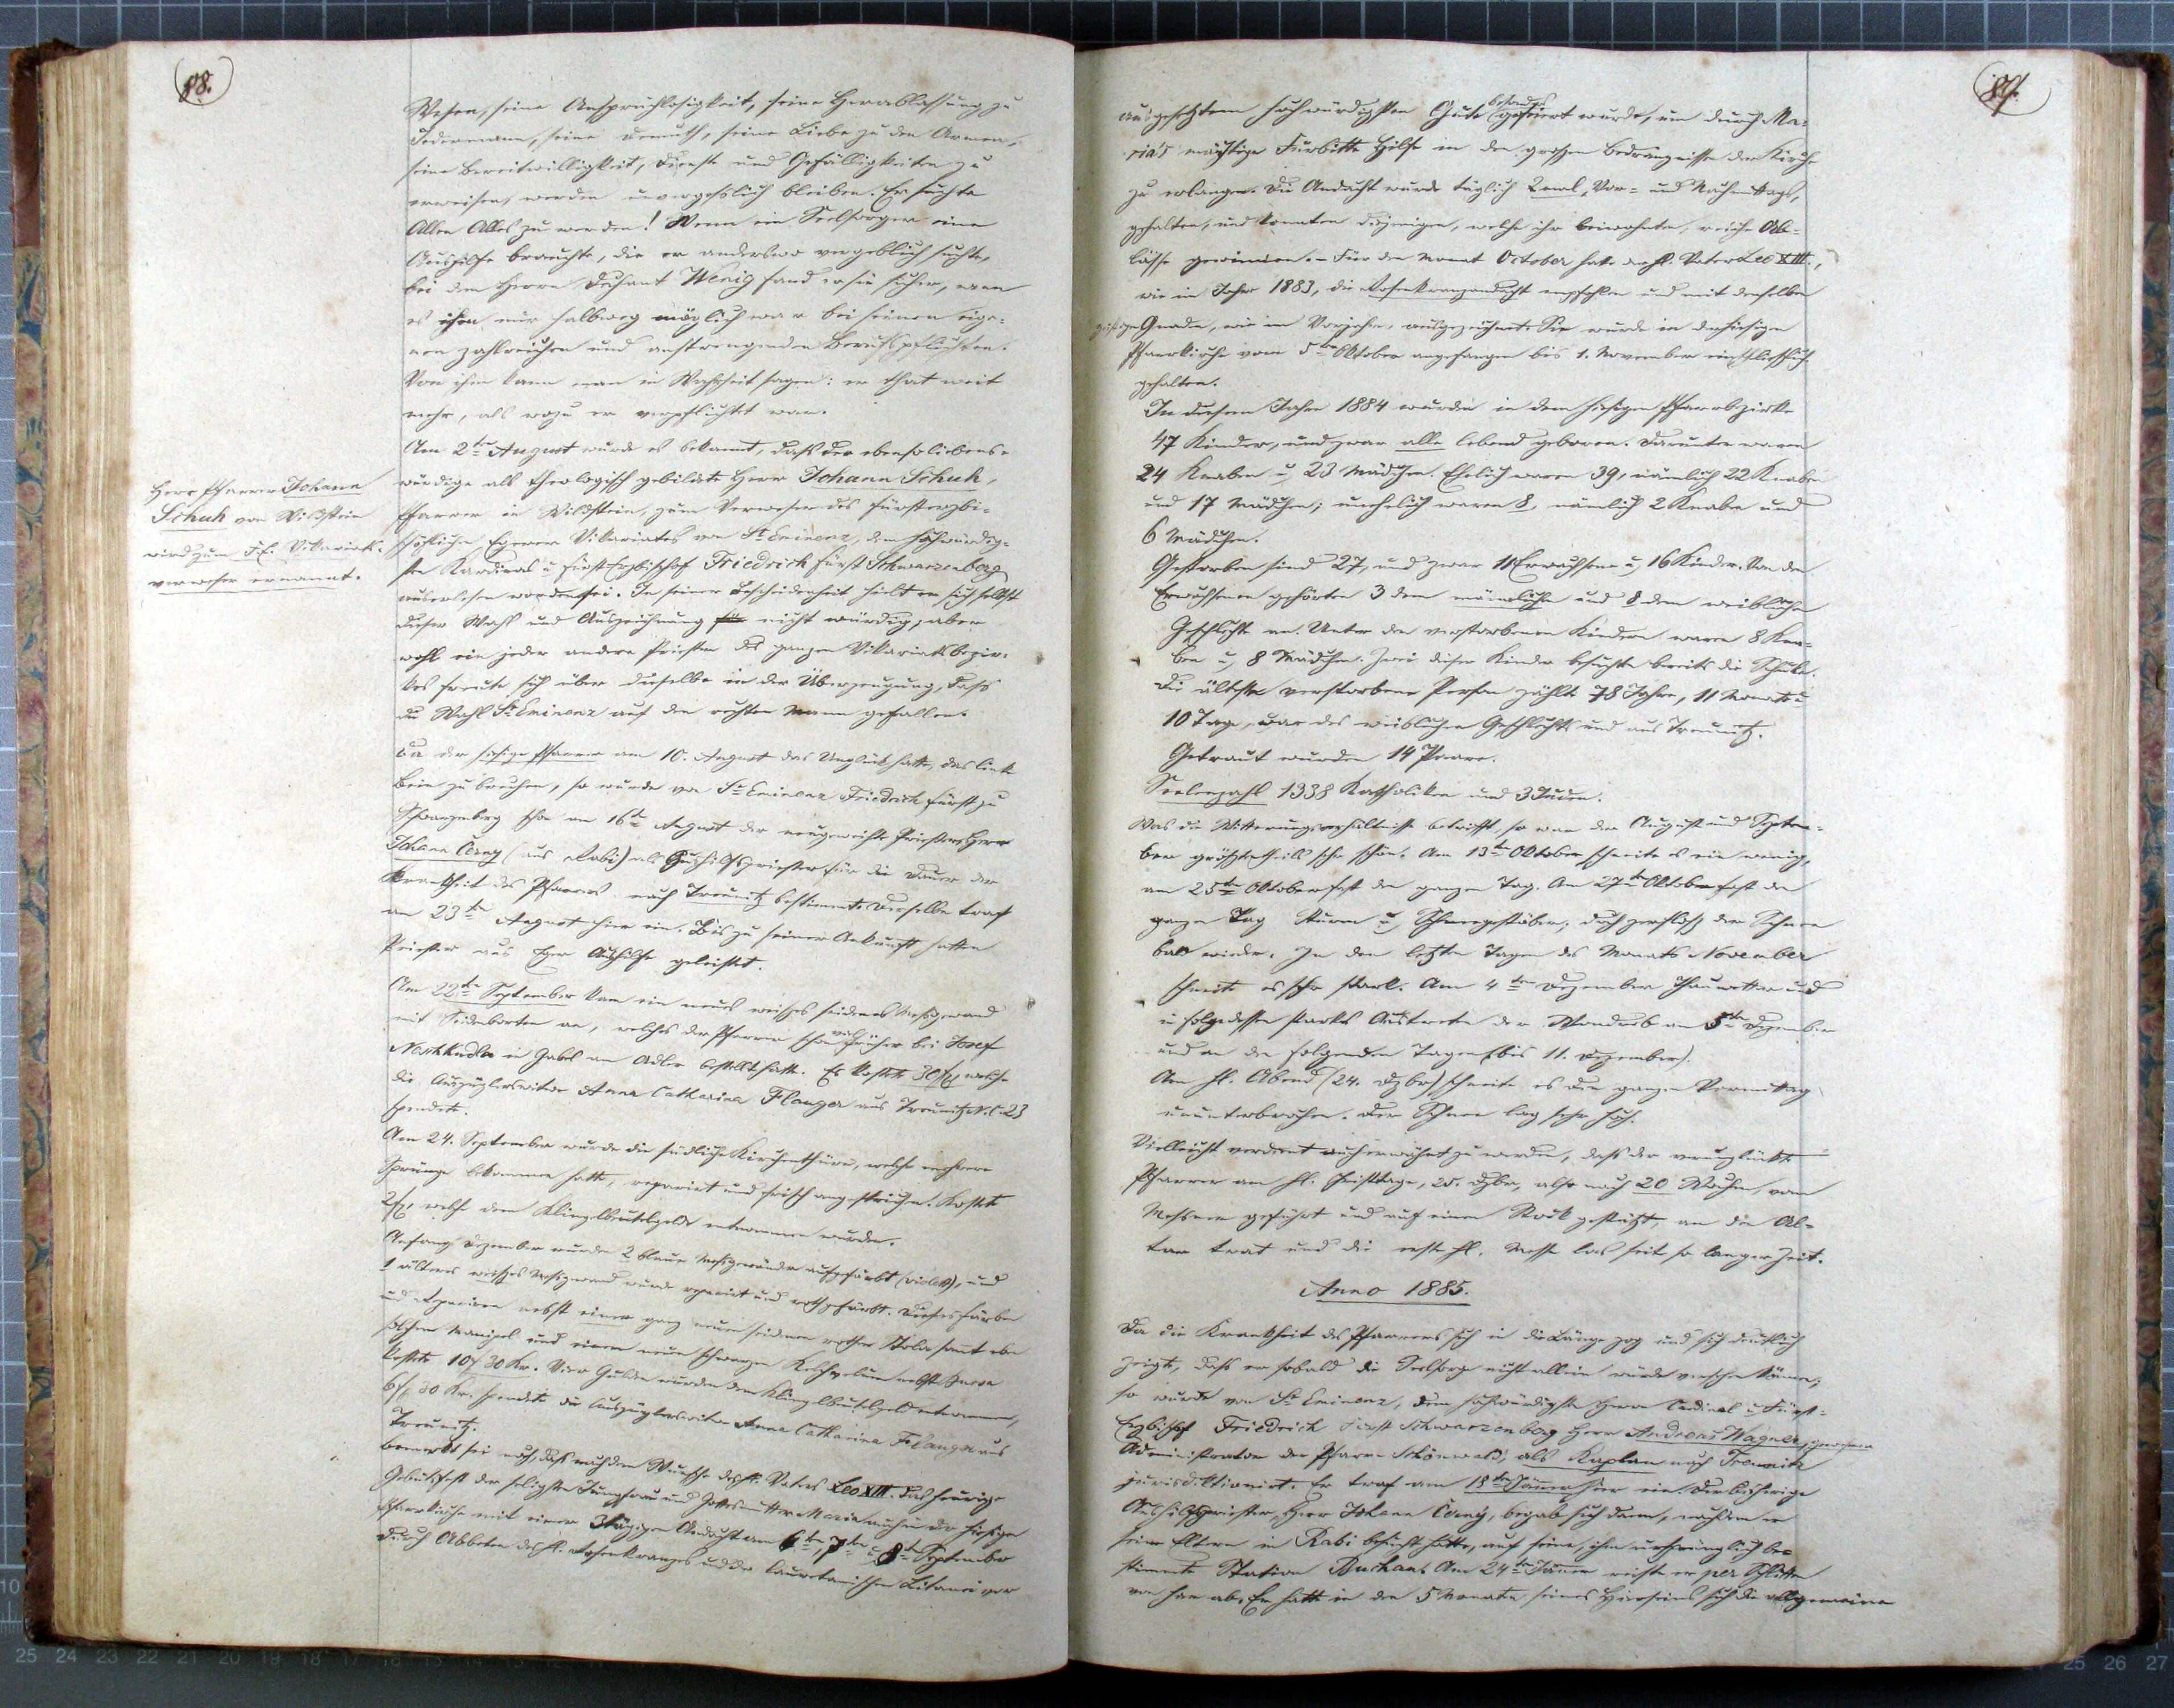 88.
Wesen, seine Anspruchlosigkeit, seine Herablassung zu
Jedermann, seine Demuth, seine Liebe zu den Armen,
seine Bereitwilligkeit, Dienste und Gefälligkeiten zu
erweisen, werden unvergeßlich bleiben. Er suchte
Allen Alles zu werden! Wenn ein Seelsorger eine
Aushilfe brauchte, die er anderswo vergeblich suchte,
bei dem Herrn Dechant Wenig fand er sie sicher, wenn
es ihm nur halbweg möglich war bei seinen eige-
nen zahlreichen und anstrengenden Berufspflichten.
Von ihm kann man in Wahrheit sagen: er that weit
mehr, als wozu er verpflichtet war.
Am 2ten August wurde es bekannt, daß der ebenso liebens-
würdige als theologisch gebildete Herr Johann Schuh,
Pfarrer in Wildstein, zum Verweser des fürsterzbi-
schöflichen Egerer Vikariates von Sr Eminenz, dem hochwürdig-
sten Kardinal u. Fürst Erzbischof Friedrich Fürst Schwarzenberg
auserlesen worden sei. In seiner Bescheidenheit hielt er sich selbst
dieser Wahl und Auszeichnung nicht würdig; aber
wohl ein jeder andere Priester des ganzen Vikariatsbezir-
kes freute sich über dieselbe in der Überzeugung, dass
die Wahl Sr Eminenz auf den rechten Mann gefallen.
Herr Pfarrer Johann
Schuh von Wildstein
wird zum F.E. Vikariats-
verweser ernannt.
Da der hiesige Pfarrer am 10. August das Unglück hatte, das linke
Bein zu brechen, so wurde von Sr Eminenz Friedrich Fürst zu
Schwarzenberg schon am 16ten August der neugeweihte Priester Herr
Johann Černý (aus Rabi) als Aushilfspriester für die Dauer der
Krankheit des Pfarrers nach Treunitz bestimmt. Derselbe traf
am 23ten August hier ein. Bis zu seiner Ankunft hatten
Priester aus Eger Aushilfe geleistet.
Am 22ten September kam ein neues weißes seidenes Meßgewand
mit Seidenborten an, welches der Pfarrer schon viel früher bei Josef
Neschkudla in Gabel am Adler bestellt hatte. Es kostete 30 fl, welche
die Auszüglerswitwe Anna Catharina Flauger aus Treunitz N.C. 23
spendete.
Am 24. September wurde die südliche Kirchenthüre, welche mehrere
Sprünge bekommen hatte, reparirt und frisch angestrichen. Kostete
2 fl, welche dem Klingelbeutelgelde entnommen wurden.
Anfang Dezember wurden 2 blaue Meßgewänder aufgefärbt (violett), und
1 älteres weißes Meßgewand wurde reparirt und roth gefärbt. Dieses Färben
und Repariren nebst einer ganz neuen seidenen rothen Stola sammt eben
solchem Manipel und einem neuen schwarzen Kelchvelum nebst Bursa
kostete 10 f 30 Kr. Vier Gulden wurden dem Klingelbeutelgeld entnommen,
6 f 30 Kr. spendete die Auszüglerswitwe Anna Catharina Flauger aus
Treunitz.
Bemerkt sei noch, daß nach dem Wunsche des hl. Vaters Leo XIII. das heurige
Geburtsfest der seligsten Jungfrau und Gottesmutter Maria auch in der hiesigen
Pfarrkirche mit einer 3tägigen Andacht am 6ten, 7ten u. 8ten September
durch Abbeten des hl. Rosenkranzes und der lauretanischen Litanei vor
89.
ausgesetztem hochwürdigsten Gute besonders gefeiert wurde, um durch Ma-
ria's mächtige Fürbitte Hilfe in den großen Bedrängnissen der Kirche
zu erlangen. Die Andacht wurde täglich 2mal, Vor- und Nachmittags,
gehalten, und konnten diejenigen, welche ihr beiwohnten, reiche Ab-
lässe gewinnen. – Für den Monat October hatte der hl. Vater Leo XIII.,
wie im Jahre 1883, die Rosenkranzandacht empfohlen und mit denselben
Gnaden, wie im Vorjahre, ausgezeichnet. Sie wurde in der hiesigen
Pfarrkirche vom 5ten Oktober angefangen bis 1. November einschließlich
gehalten.
In diesem Jahre 1884 wurden in dem hiesigen Pfarrbezirke
47 Kinder, und zwar alle lebend geboren. Darunter waren
24 Knaben u. 23 Mädchen. Ehelich waren 39, nämlich 22 Knaben
und 17 Mädchen; unehelich waren 8, nämlich 2 Knaben und
6 Mädchen.
Gestorben sind 27, und zwar 11 Erwachsene u. 16 Kinder. Von den
Erwachsenen gehörten 3 dem männlichen und 8 dem weiblichen
Geschlechte an. Unter den verstorbenen Kindern waren 8 Kna-
ben u. 8 Mädchen. Zwei dieser Kinder besuchten bereits die Schule.
Die älteste verstorbene Person zählte 78 Jahre, 11 Monate u
10 Tage, war des weiblichen Geschlechts und aus Treunitz.
Getraut wurden 14 Paare.
Seelenzahl 1338 Katholiken und 3 Juden.
Was die Witterungsverhältnisse betrifft, so war der August und Septem-
ber größtentheils sehr schön. Am 13ten Oktober schneite es ein wenig,
am 25ten Oktober fast den ganzen Tag. Am 27ten Oktober fast den
ganzen Tag Sturm u. Schneegestöber; doch zerfloß der Schnee
bald wieder. In den letzten Tagen des Monats November
schneite es sehr stark. Am 4ten Dezember Thauwetter und
in folgedessen starkes Austreten der Wondreb am 5ten Dezember
und an den folgenden Tagen (bis 11. Dezember).
Am hl. Abend (24. Dzbr) schneite es den ganzen Vormittag
ununterbrochen. Der Schnee lag sehr hoch.
Vielleicht verdient auch erwähnt zu werden, daß der verunglückte
Pfarrer am hl. Christtage, 25. Dzbr, also nach 20 Wochen, vom
Meßner geführt und auf einen Stock gestützt, an den Al-
tar trat und die erste hl. Messe las seit so langer Zeit.
Anno 1885.
Da die Krankheit des Pfarrers sich in die Länge zog und sich deutlich
zeigte, daß er sobald die Seelsorge nicht allein würde versehen können,
so wurde von Sr Eminenz, dem hochwürdigsten Herrn Cardinal u. Fürst-
Erzbischof Friedrich Fürst Schwarzenberg Herr Andreas Wagner,
Administrator der Pfarre Schönwald, als Kaplan nach Treunitz
jurisdiktionirt. Er traf am 18ten Jänner hier ein. Der bisherige
Aushilfspriester, Herr Johann Černý, begab sich dann, nachdem er
seine Eltern in Rabi besucht hatte, auf seine, ihm ursprünglich be-
stimmte Station Buchau. Am 24ten Jänner reiste er per Schlitten
von hier ab. Er hatte in den 5 Monaten seines Hierseins sich die allgemeine